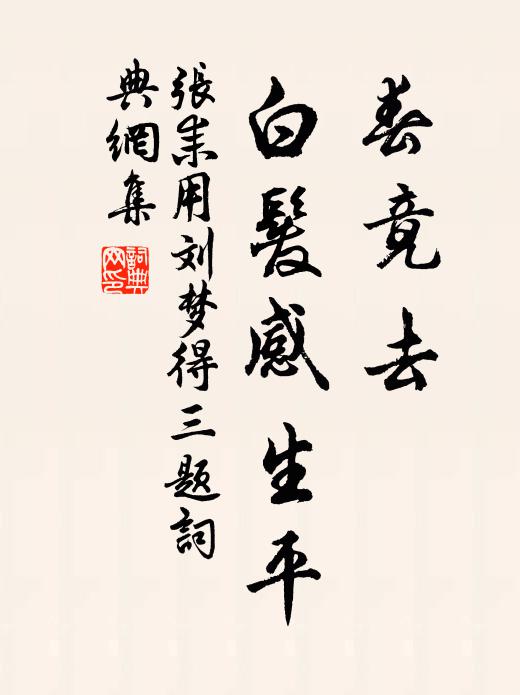 春竟去
白髮感生平
張耒用刘梦得三题詞
典網集
詞典网印